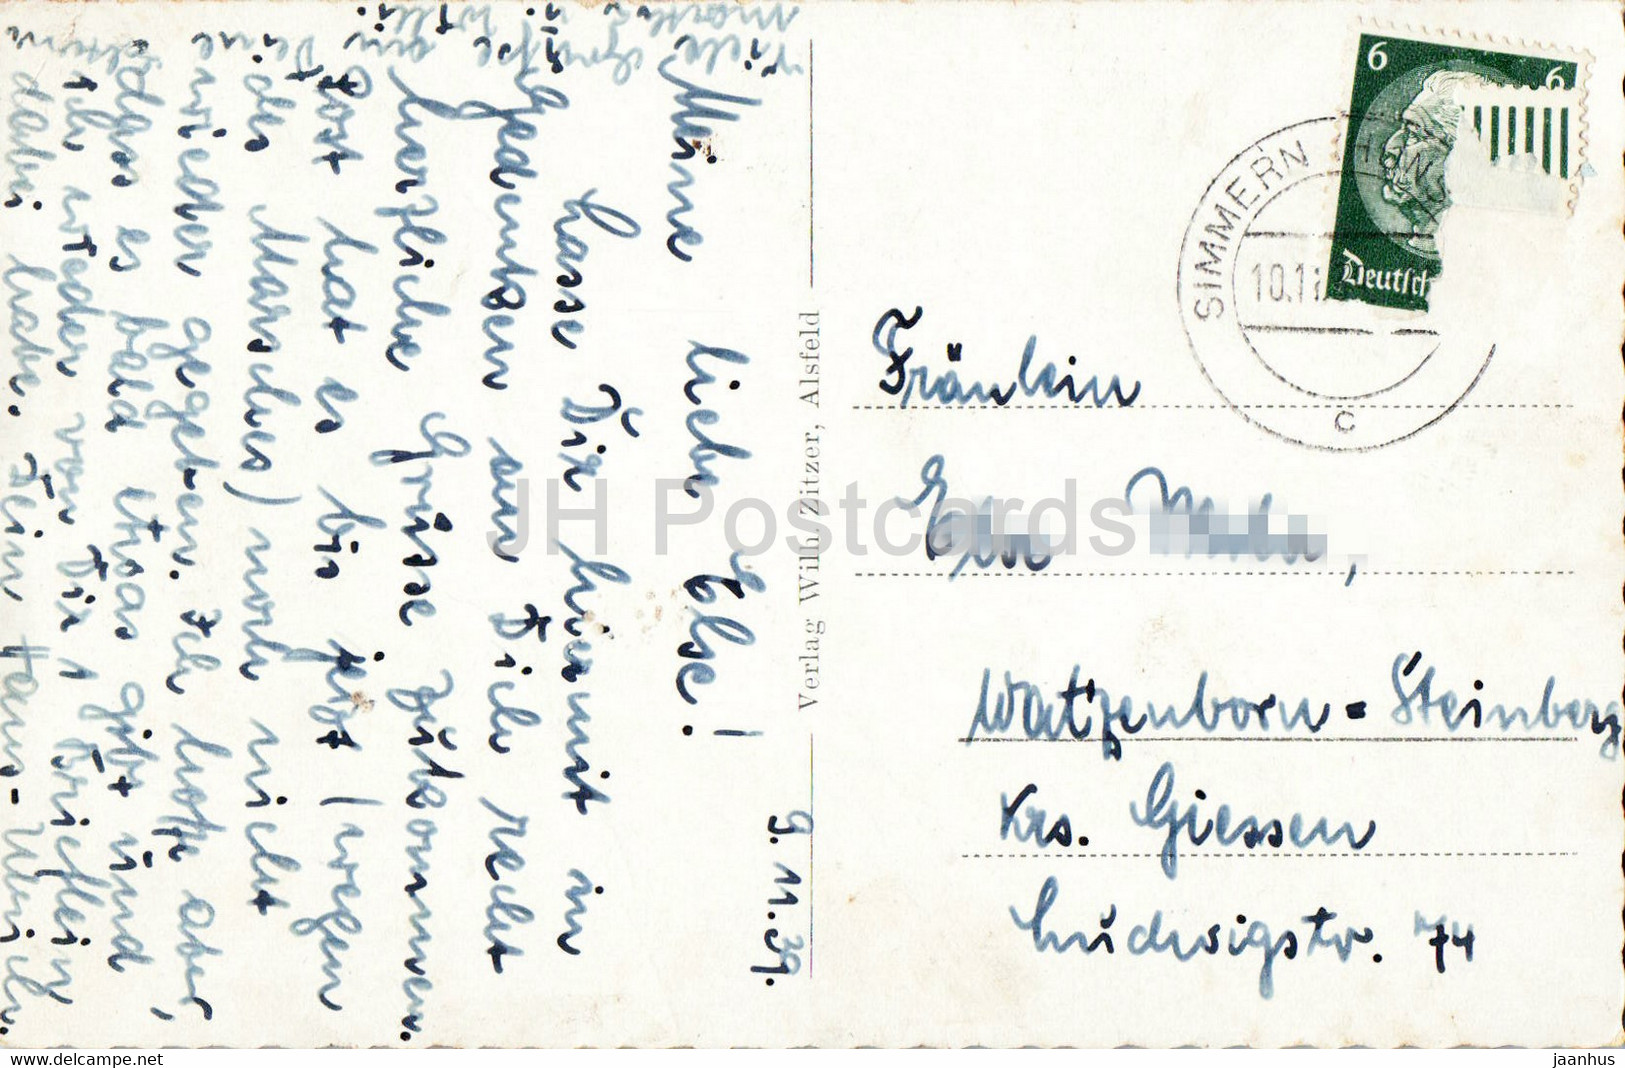 9. 11. 39.
Meine liebe Else!
Lasse Dir hiermit im
Gedenken an Dich recht
herzliche Grüsse zukommen.
Post hat es bis jetzt (wegen
des Marsches) noch nicht
wieder gegeben. Ich hoffe aber,
dass es bald etwas gibt und
ich wieder von Dir 1 Brieflein
dabei habe. Dein Hans-Ulrich.
Viele Grüsse an Deine Eltern
Martha u. Willi.
Verlag Willi Zitzer, Alsfeld
6 6
Deutsch
SIMMERN (HUNS
10.11
c
Fräulein
Else
Watzenborn-Steinberg
Krs. Giessen
Ludwigstr. 74
JH Postcards
www.delcampe.net
jaanhus